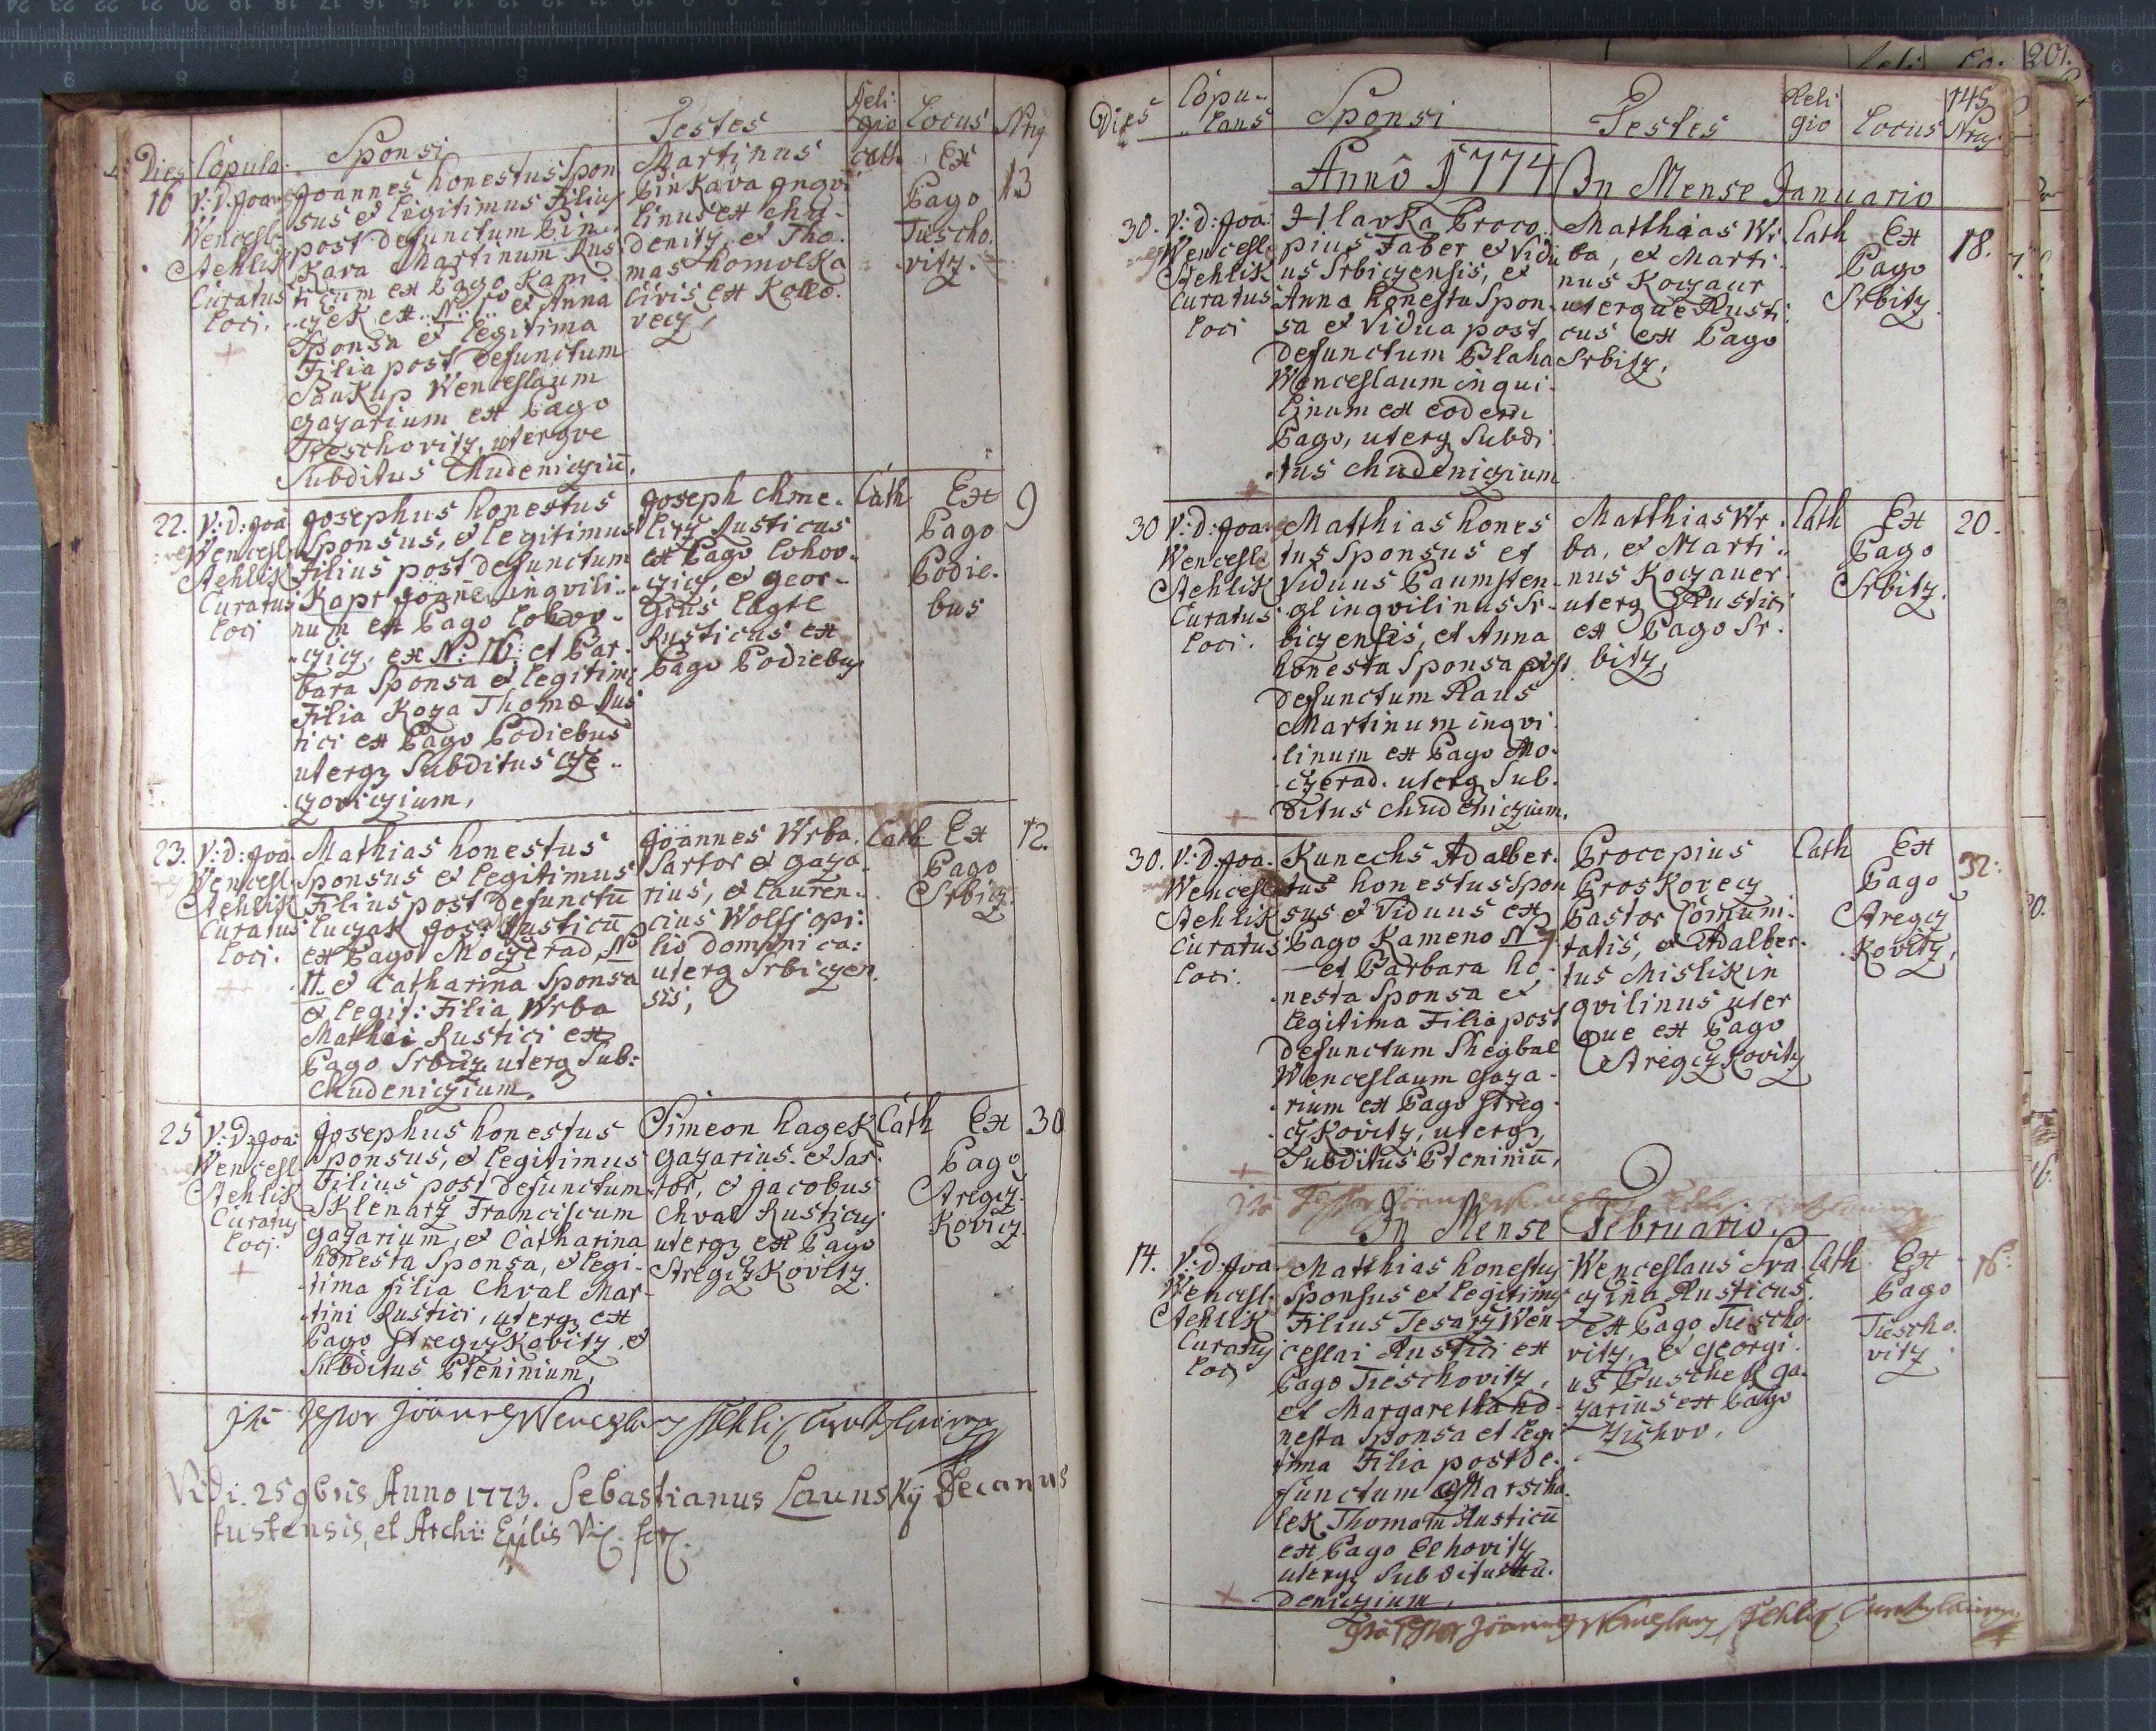 Dies Copula: Sponsi Testes Reli: gio Locus Nrg
16 V: D: Joan
Wencesl:
Stehlik
Curatus
loci.
Joannes honestus Spon
sus et legitimus Filius
post defunctum Pin..
Kava Martinum Rus
ticum ex Pago Kam
et Anna
Sponsa et legitima
Filia post defunctum
SauKup Wenceslaum
gazarium ex Pago
Tieschovitz, utergve
Subditus Chudeniczium.
Martinus
PinKava Ingvi
linus ex Chu-
denitz, et Tho.
mas homolKa
Civis ex Kolo.
vecz,
Cath.
Ex
Pago
Tuscho.
vitz.
13
22. V: D: Joa
Wencesl:
Stehlik
Curatus
loci
Josephus honestus
Sponsus, et legitimus
Filius post defunctum
Kapr Joañe ingvili..
num ex Pago Lohov-
..czicz, ex N: 16: et Bar-
bara Sponsa et legitim:
Filia Koza Thomæ Rus
tici ex Pago Podiebus
uterg Subditus cze..
czoviczium,
Joseph Chme.
litz Rusticus
ex Pago Lohov.
.czicz, et geor-
gius
Rusticus ex
Pago Podiebus
Cath
Ex
Pago
Podie.
bus
9
23. V: D: Joa
Wencesl:
Stehlik
Curatus
loci.
Mathias honestus
Sponsus et legitimus
Filius post defunctū
Luczak Josē: Rusticū
ex Pago Moczerad, No
11. et Catharina Sponsa
et legit: Filia Wrba
Mathæi Rustici ex
Pago Srbicz. uterg Sub:
Chudeniczium.
Joannes Wrba.
Sartor et gaza.
rius, et Lauren..
cius Wolff opi:
lio domini ca:
uterg Srbiczen.
sis,
Cath
Ex
Pago
Srbicz.
12.
25 V: D: Joa:
Wencesl.
Stehlik
Curatus
loci.
Josephus honestus
Sponsus, et legitimus
Filius post defunctum
SKlenarz Franciscum
gazarium, et Catharina
honesta Sponsa, et legi-
tima filia Chval Mar-
tini Rustici, uterg ex
Pago StregczKovitz, et
Subditus Pteninium,
Simeon hageK
gazarius. et Sar:
tor, et Jacobus
Chval Rusticus
uterg ex Pago
StregczKovitz.
Cath
Ex
Pago
Stregcz.
Kovicz.
30
Ita Testor Joannes Wenceslaus Stehlik Curatus
Vidi. 25 9bris Anno 1773. Sebastianus LaunsKÿ Decanus
tustensis, et Archi: Eplis Vic. for.
145
Dies Copu.. ..lans Sponsi Testes Reli gio Locus Nrg.
Annô 1774 In Mense Januario
30. V: D: Joa:
Wencesl
Stehlik
Curatus
loci
HlavKa Proco..
pius Faber et Vidu
us Srbiczensis, et
Anna honesta Spon-
sa et Vidua post
defunctum Blaha
Wenceslaum inqui.
linum ex eodem
Pago, uterg Subdi
.tus Chudeniczium
Matthias Wr.
ba, et Marti.
nus Koczaur
uterque Rusti
cus ex Pago
Srbitz,
Cath
Ex
Pago
Srbitz.
18.
30 V: D: Joan
Wencesl
Stehlik
Curatus
loci.
Matthias hones
tus Sponsus et
Viduus Paumsten-
.gl ingvilinus Sr-
biczensis, et Anna
honesta Sponsa post
defunctum Raus
Martinum ingvi.
.linum ex Pago Mo.
.czerad. uterg Sub.
ditus Chudeniczium.
Matthias Wr.
ba, et Marti..
nus Koczauer
uterg Rustici
ex Pago Sr.
bitz,
Cath
Ex
Pago
Srbitz.
20.
30. V: D: Joa.
Wencesl
Stehlik
Curatus
loci.
Kunechs Adalber.
tus honestus Spon
sus et Viduus ex
Pago Kameno N 7
et Barbara ho-
.nesta Sponsa et
legitima Filia post
defunctum Shegbal
Wenceslaum gaza-
.rium ex Pago Streg.
.czKovitz, uterg,
Subditus Pteniniū,
Procopius
ProsKovecz
Pastor Comuni.
tatis, et Adalber.
tus Mislik in
gvilinus uter
que ex Pago
StregczKovitz
Cath
Ex
Pago
Stregcz
.Kovitz,
32:
In Mense Februario.
14. V: D: Joa.
Wencesl.
Stehlik
Curatus
loci
Matthias honestus
Sponsus et legitimus
Filius Tesarz Wen-
ceslai Rustici ex
Pago Tieschovitz,
et Margaretha ho-
nesta Sponsa et legi
tima Filia post de.
functum Marscha.
leK Thomam Rusticū
ex Pago Elhovitz
uterg Subditus Chu.
deniczium.
Wenceslaus Sva.
czina Rusticus.
ex Pago Tiescho.
vitz, et georgi.
us PuscheK ga.
zarius ex Pago
Zichov.
Cath
Ex
Pago
Tiescho.
vitz
16:
Ita Testor Joannes Wenceslaus Stehlik Curatus
201.